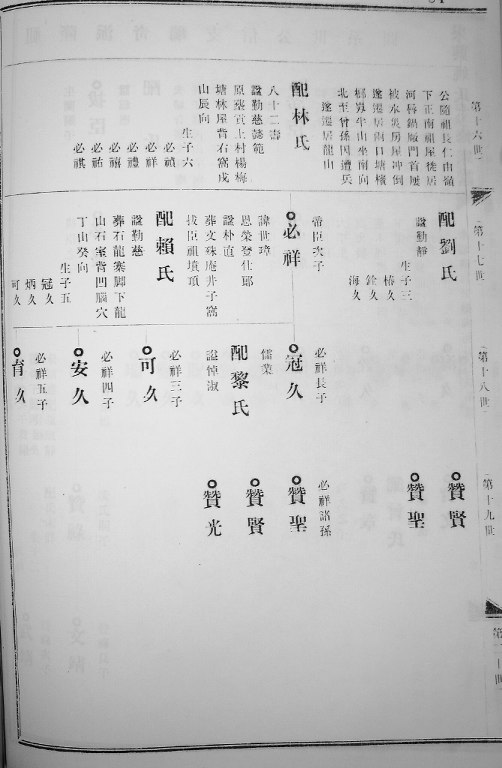 第十六世
公隨祖長仁由嶺
下正南祖屋徙居
河唇鍋廠門首厦
被水災房屋冲倒
遂遷居南口塘檳
北至曾孫因遭兵
遂遷居龍山
配林氏
八十二壽
諡勤慈懿範
原葬萱上村楊梅
塘林屋背石窩戌
山辰向
生子六
必禎
必祥
必禮
必禧
必祐
必祺
第十七世
配劉氏
諡勤靜
生子三
椿久
銓久
海久
帝臣次子
必祥
諱世璋
恩榮登仕郎
諡朴直
葬文殊庵井子窩
扳臣祖墳項
配賴氏
諡勤慈
葬石龍寨脚下龍
山石室背凹腦穴
丁山癸向
生子五
冠久
炳久
可久
第十八世
必祥長子
冠久
儒業
配黎氏
諡悼淑
必祥三子
可久
必祥四子
安久
必祥五子
育久
第十九世
贊賢
贊聖
必祥諸孫
贊聖
贊賢
贊光